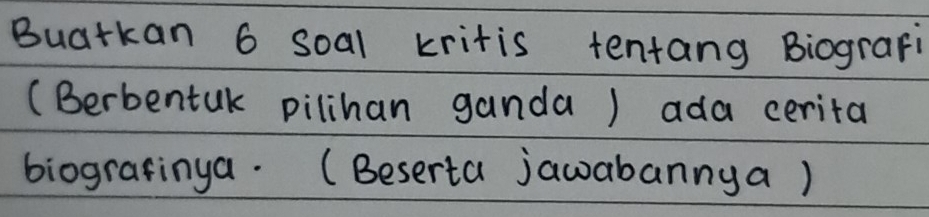 Buatkan 6 soal kritis tentang Biografi
(Berbentuk pilihan ganda) ada cerita
biografinya. (Beserta jawabannya)